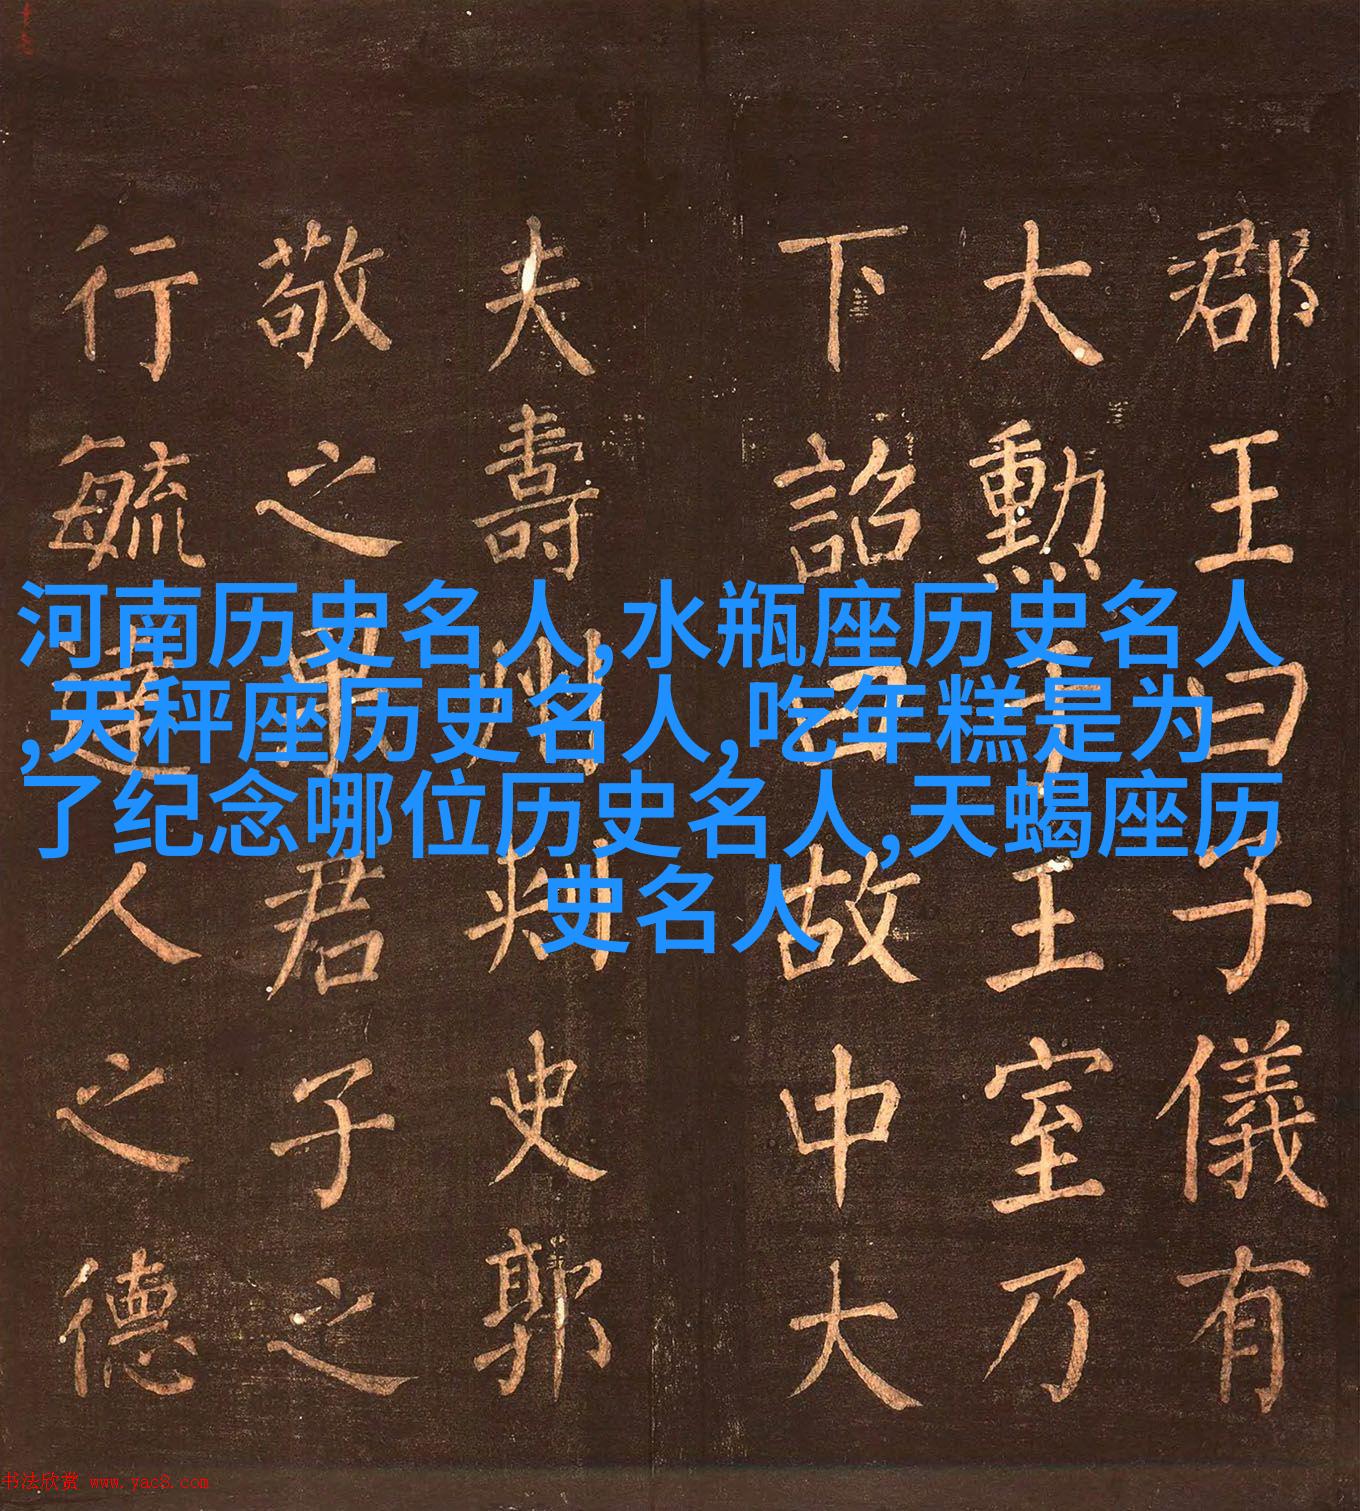 郡王曰子儀有
大勲于王室乃
下詔曰故中大
夫壽州刺史郭
敬之果君子之
行毓達人之德
河南历史名人,水瓶座历史名人
,天秤座历史名人,吃年糕是为
了纪念哪位历史名人,天蝎座历
史名人
书法欣赏 www.yac8.com